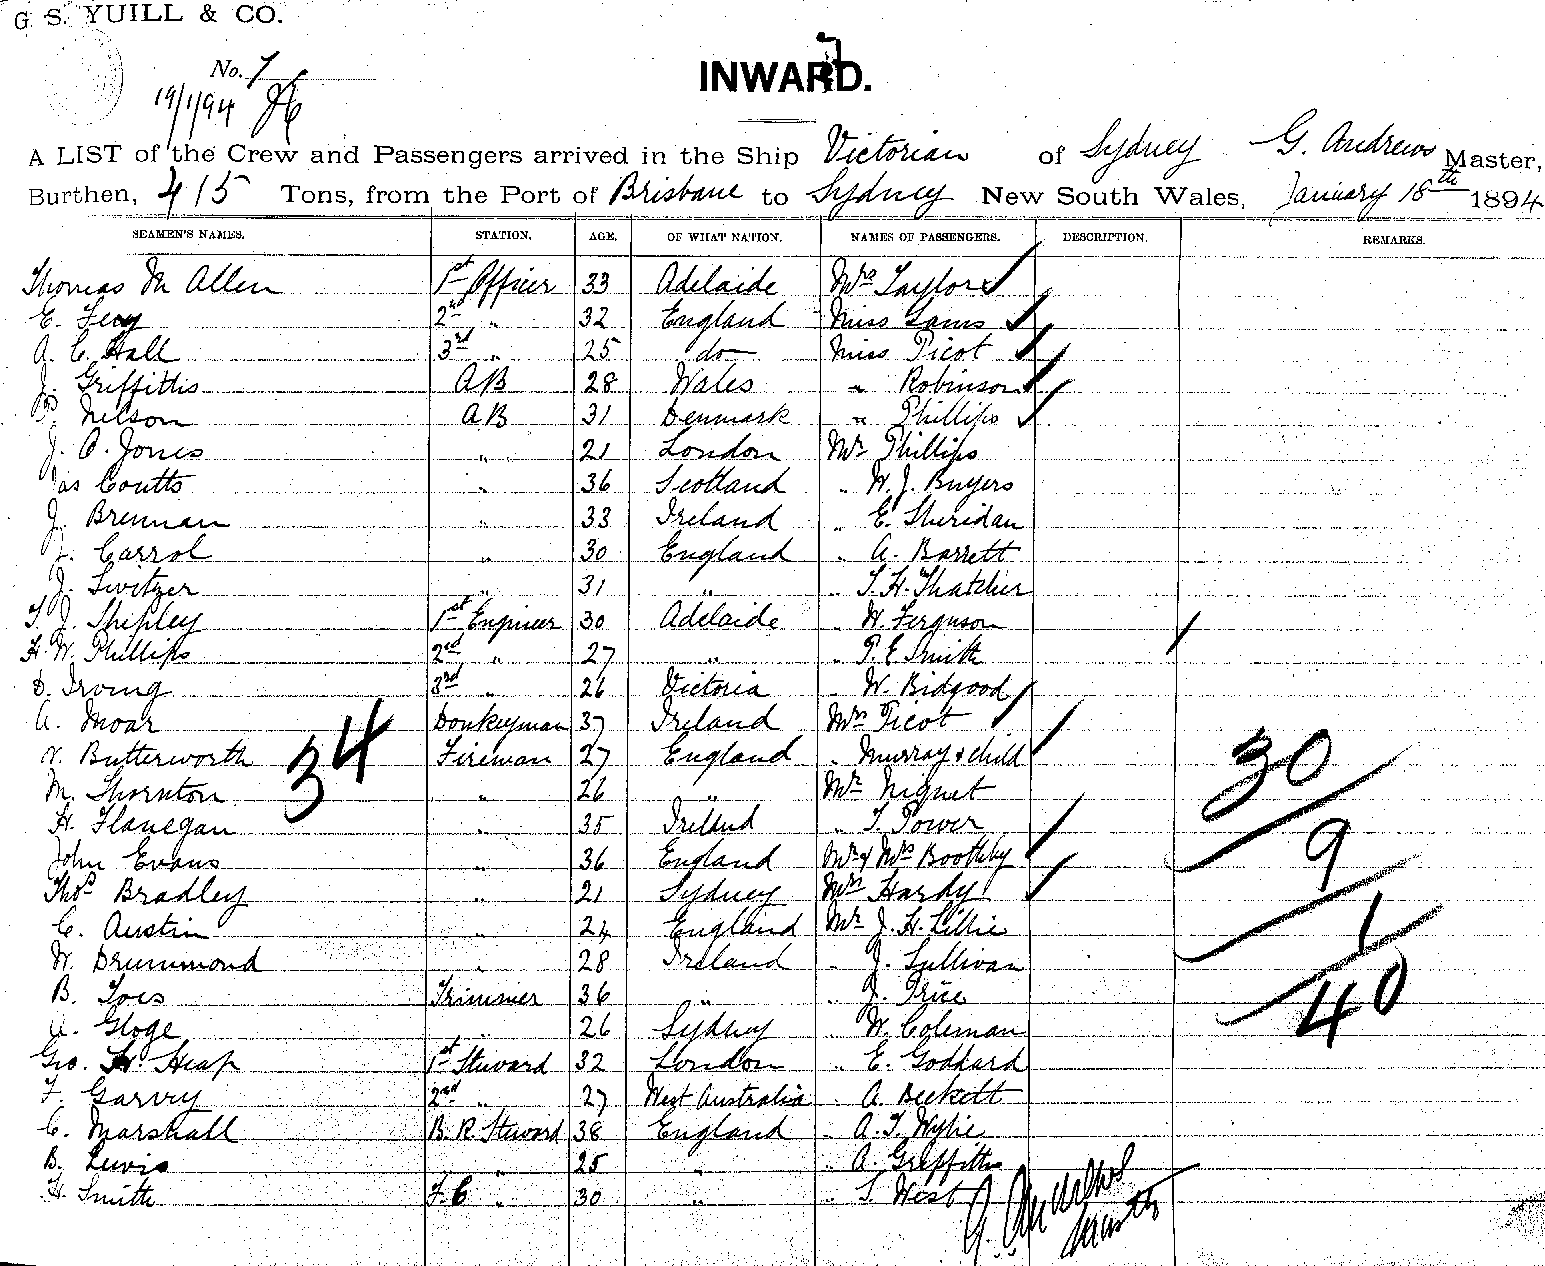 G. S. YUILL & CO.
No. 7
19/1/94
INWARD.
A LIST of the Crew and Passengers arrived in the Ship Victorian of Sydney G. Andrews Master,
Burthen, 415 Tons, from the Port of Brisbane to Sydney New South Wales, January 18th 1894
SEAMEN'S NAMES. STATION. AGE. OF WHAT NATION. NAMES OF PASSENGERS. DESCRIPTION. REMARKS.
Thomas M Allen 1st Officer 33 Adelaide Mrs Taylor
E. 2nd " 32 England Miss Sams
A. C. Hall 3rd " 25 do Miss Picot
J. Griffiths AB 28 Wales " Robinson
P. Nelson AB 31 Denmark " Phillips
J. C. Jones " 21 London Mr Phillips
Jas Coutts " 36 Scotland " W. J. Buyers
J. Brennan " 33 Ireland " E. Sheridan
J. Carrol " 30 England " A. Barrett
J. Switzer " 31 " " T. H. Thatcher
T. J. Shipley 1st Engineer 30 Adelaide " W. Ferguson
H. W. Phillips 2nd " 27 " " P. E. Smith
D. Irving 3rd " 26 Victoria " W. Bidgood
A. Moar Donkeyman 37 Ireland Mrs Picot
Butterworth Fireman 27 England " Murray & child
34
30
M. Thornton " 26 " Mr Niquet
H. Flanegan " 35 Ireland " T. Power
9
John Evans " 36 England Mr & Mrs Boothby
Thos Bradley " 21 Sydney Mrs Hardy
C. Austin " 24 England Mr J. H. Lillie
1
W. Drummond " 28 Ireland " J. Sullivan
B. Toes Trimmer 36 " " J. Price
40
A. Gloge " 26 Sydney " W. Coleman
Geo. H. Heap 1st Steward 32 London " E. Goddard
F. Garvey 2nd " 27 West Australia " A. Beckett
C. Marshall B. R. Steward 38 England " A. T. Wylie
B. Lewis " 25 " " A. Griffiths
H. Smith F. C " 30 " " T. West
G. Andrews
Master